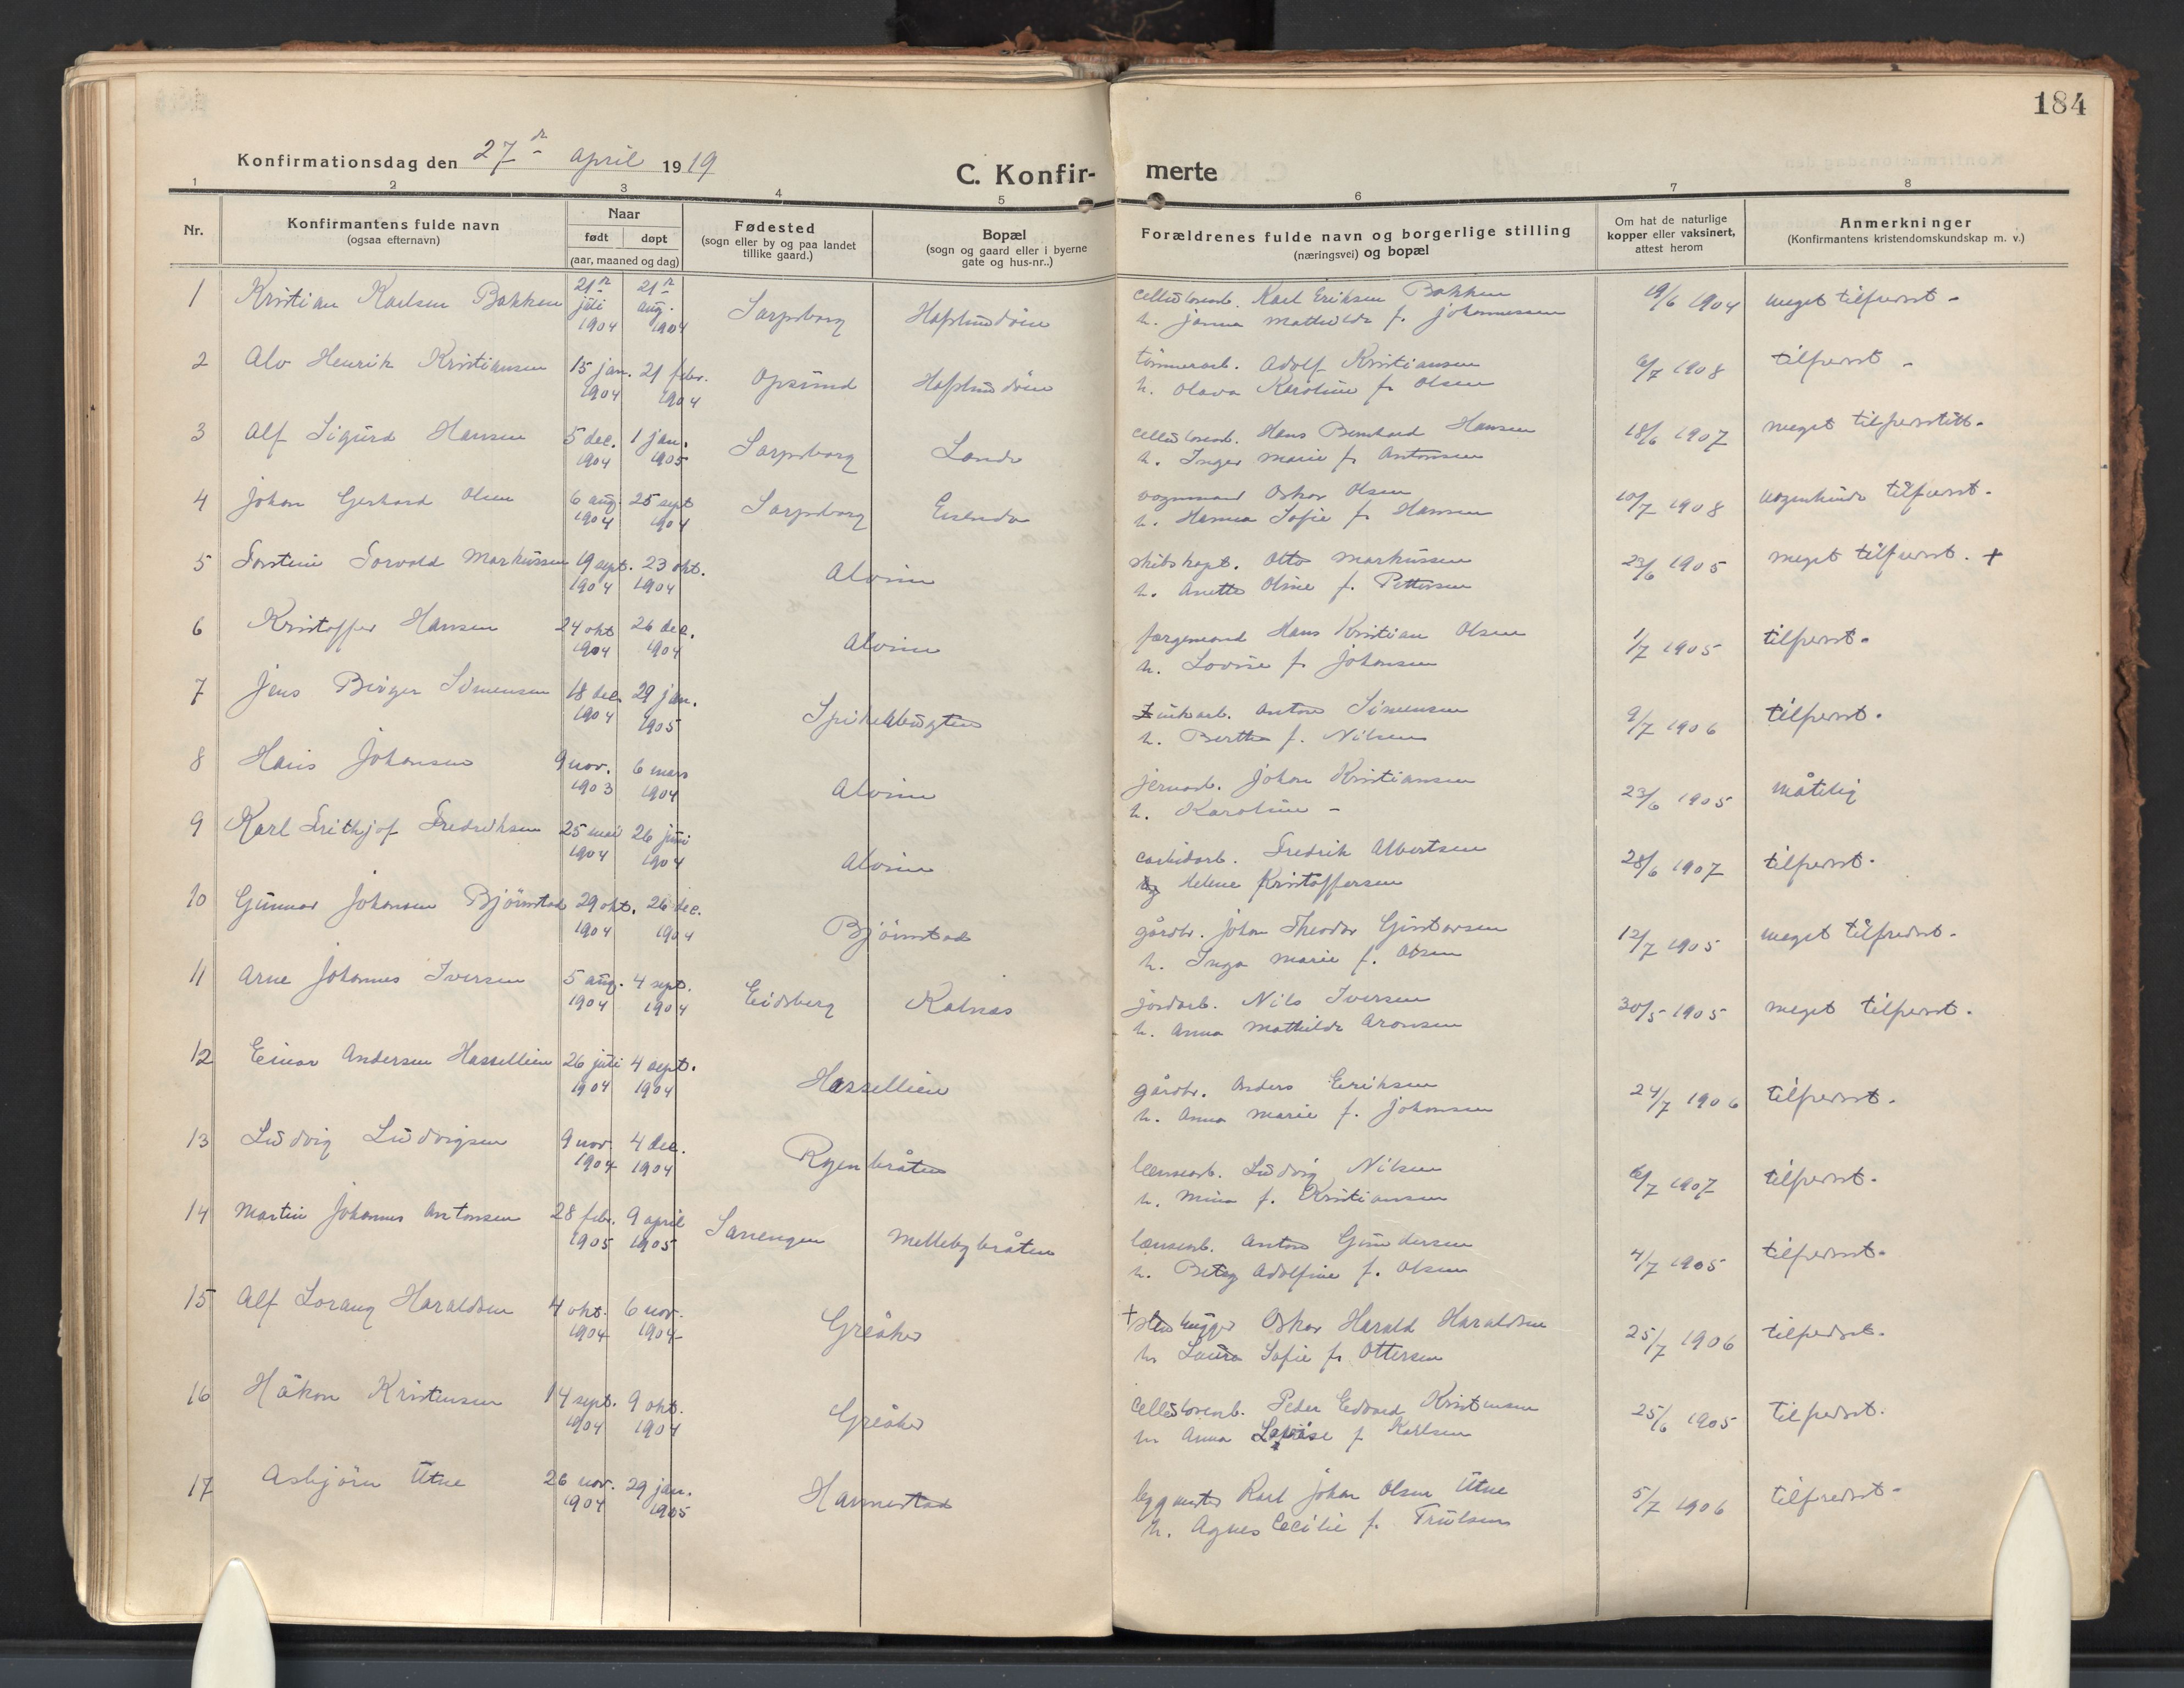 184
Konfirmationsdag den 27de april 1919
C. Konfir- merte
1 2 3 4 5 6 7 8
Nr.
Konfirmantens fulde navn
(ogsaa efternavn)
Naar
født døpt
(aar, maaned og dag)
Fødested
(sogn eller by og paa landet
tillike gaard.)
Bopæl
(sogn og gaard eller i byerne
gate og hus-nr..)
Forældrenes fulde navn og borgerlige stilling
(næringsvei) og bopæl
Om hat de naturlige
kopper eller vaksinert,
attest herom
Anmerkninger
(Konfirmantens kristendomskundskap m. v.)
1 Kristian Karlsen Bakken 21de juli 1904 21de aug. 1904 Sarpsborg Hafslundsöen cellulosearb. Karl Eriksen Bakken 19/6 1904 meget tilfredsst-
h. Janna Mathilde f. Johannessen
2 Alv Henrik Kristiansen 15 jan. 1904 21 febr. 1904 Opsund Hafslundsöen tömmerarb. Adolf Kristiansen 6/7 1908 tilfredsst-
h. Olava Karoline f. Olsen
3 Alf Sigurd Hansen 5 dec. 1904 1 jan. 1905 Sarpsborg Lande cellulosearb. Hans Bernhard Hansen 18/6 1907 meget tilfredsstill.
h. Inger Marie f. Antonsen
4 Johan Gerhard Olsen 6 aug. 1904 25 sept 1904 Sarpsborg vognmand Oskar Olsen 10/7 1908 tilfredsst.
h. Hanna Sofie f. Hansen
5 Torstein Torvald Markussen 19 sept. 1904 23 okt. 1904 Alvim skibskapt. Otto Markussen 23/6 1905 meget tilfredsst. +
h. Anette Oline f. Pettersen
6 Kristoffer Hansen 24 okt 1904 26 dec. 1904 Alvim færgemand Hans Kristian Olsen 1/7 1905 tilfredsst.
h. Lovise f. Johansen
7 Jens Birger Simensen 18 dec. 1904 29 jan. 1905 Zinkarb. Anton Simensen 9/7 1906 tilfredsst.
h. Berthe f. Nilsen
8 Hans Johansen 9 nov. 1903 6 mars 1904 Alvim jernarb. Johan Kristiansen 23/6 1905 måtelig
h. Karoline -
9 Karl Frithjof Fredriksen 25 mai 1904 26 juni 1904 Alvim carbidarb. Fredrik Albertsen 28/6 1907 tilfredsst.
og Helene Kristoffersen
10 Gunnar Johansen Bjørnstad 29 okt. 1904 26 dec. 1904 Bjørnstad gårdbr. Johan Theodor Gustavsen 12/7 1905 meget tilfredsst.
h. Inga Marie f. Olsen
11 Arne Johannes Iversen 5 aug. 1904 4 sept. 1904 Eidsberg Kalnæs jordarb. Nils Iversen 30/5 1905 meget tilfredsst.
h. Anna Mathilde Aronsen
12 Einar Andersen Hassellien 26 juli 1904 4 sept. 1904 Hassellien gårdbr. Anders Eriksen 24/7 1906 tilfredsst.
h. Anna Marie f. Johansen
13 Ludvig Ludvigsen 9 nov. 1904 4 dec. 1904 Ryenbråten lænsearb. Ludvig Nilsen 6/7 1907 tilfredsst.
h. Mina f. Kristiansen
14 Martin Johannes Antonsen 28 febr. 1905 9 april 1905 Sanengen Mellebybråten lænsearb. Anton Gundersen 4/7 1905 tilfredsst.
h. Betzy Adolfine f. Olsen
15 Alf Lorang Haraldsen 4 okt. 1904 6 nov. 1904 Greåker + stenhugger Oskar Harald Haraldsen 25/7 1906 tilfredsst.
h. Laura Sofie f. Ottersen
16 Håkon Kristensen 14 sept. 1904 9 okt. 1904 Greåker cellulosearb. Peder Edvard Kristensen 25/6 1905 tilfredsst.
h. Anna Lovise f Karlsen
17 Asbjörn Utne 26 nov. 1904 29 jan. 1905 Hannestad byggmester Karl Johan Olsen Utne 5/7 1906 tilfredsst-
h. Agnes Cecilie f. Trulsen